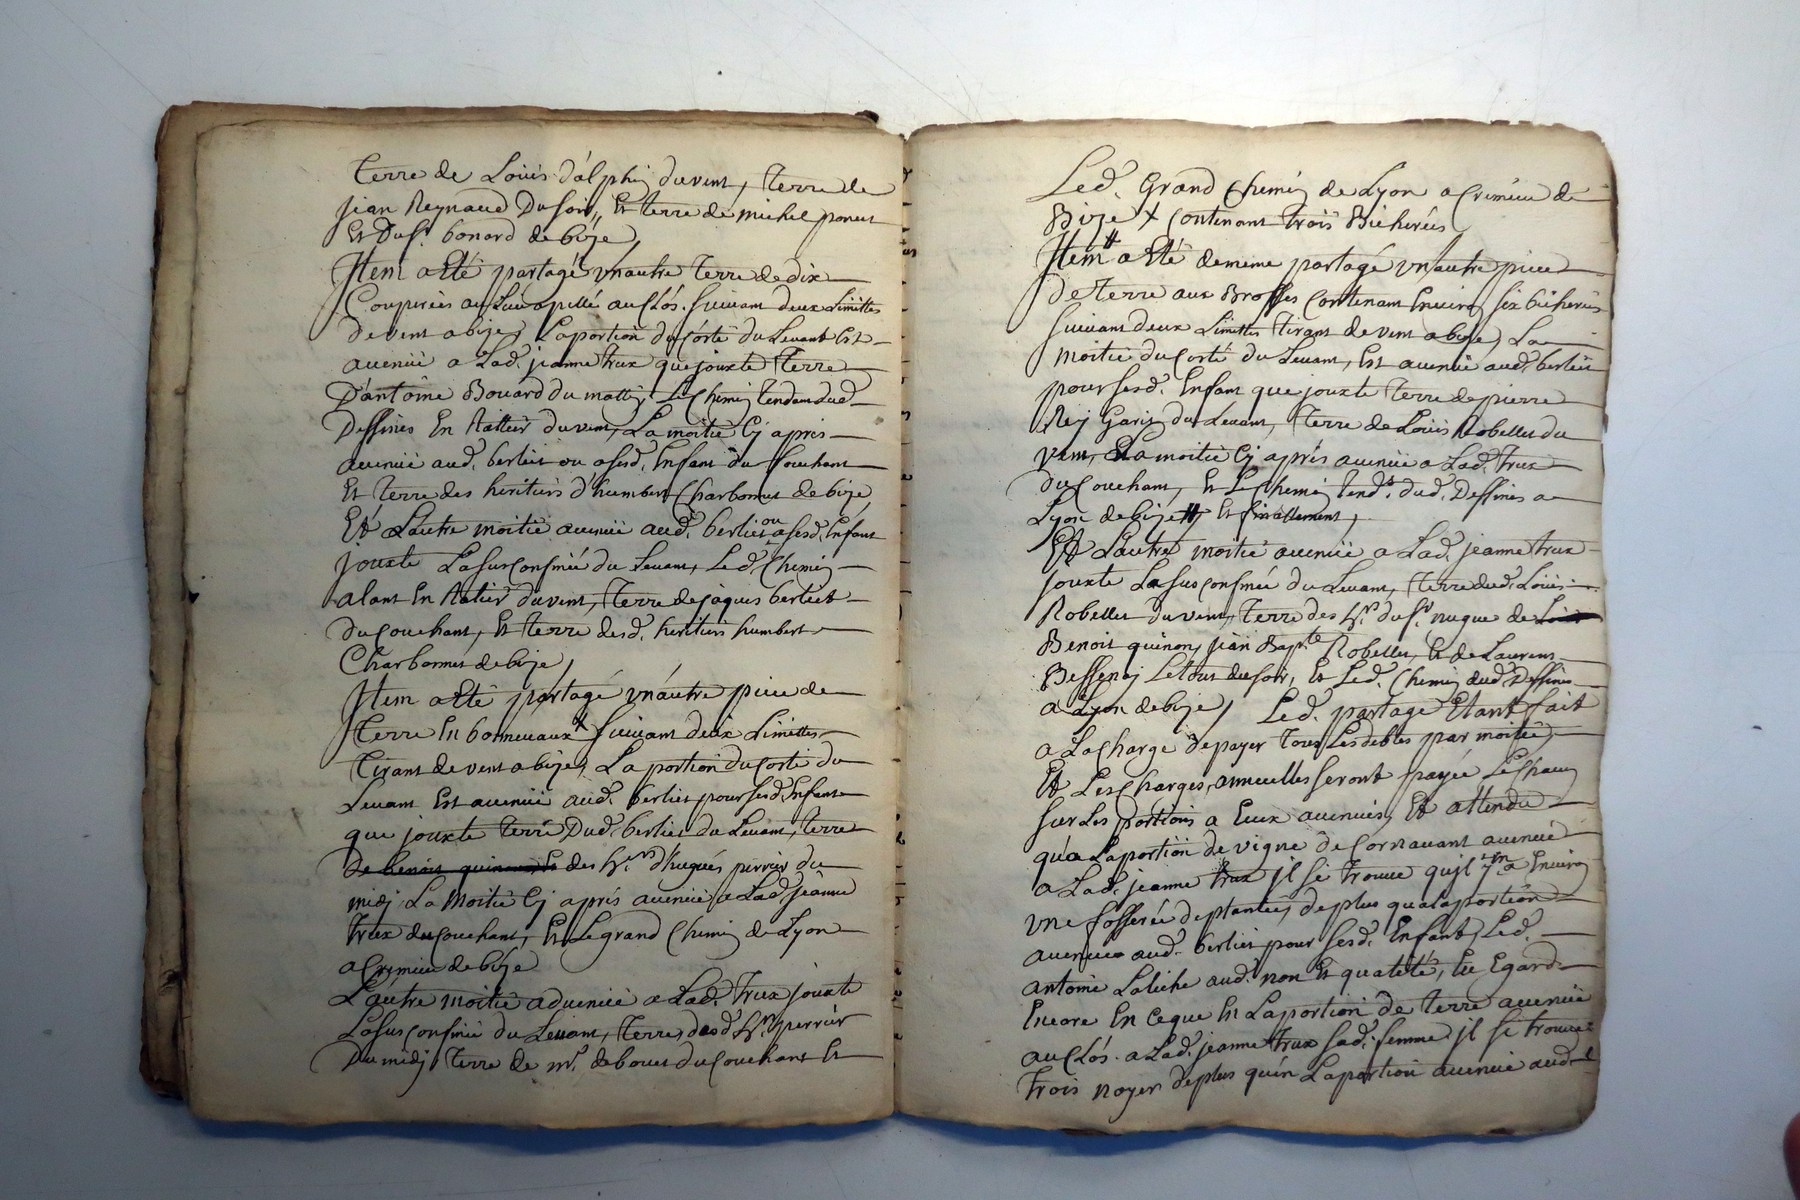 Terre de Loüis dalphin du vent, Terre de
jean Reynaud Du soir, Et terre de michel poncet
Et Du sr. bonard de bize,
Item a Eté partagé vnautre Terre de dix
Couperées au Lieu apellé au Clós. suiuant deux Limittes
de vent a bize, La portion du Córté du Leuant Est
auenüe a Lad. jeanne trux que jouxte Terre
D'antoine Bouard du mattin, Le Chemin tendant dud.
Dessines En Rattier du vent, La moitié Cy aprés
auenüe aud. berliet ou a sesd. Enfant du Couchant
Et Terre des heritiers d'humbert Charbonnet de bize,
Et Lautre moitié auenüe aud. berliet ou a sesd. Enfant
jouxte La susconfinée du Leuant, Led. Chemin
alant En Ratier du vent, Terre de jaques berliet
du Couchant, Et terre desd. heritiers humbert
Charbonnet de bize,
Item a Eté partagé vnáutre piece de
Terre En bonneuaux suiuant deux Limittes
Tirant de vent a bize, La portion du Corté du
Leuant Est auenüe aud. berliet pour sesd. Enfant
que jouxte terre Dud. berliet du Leuant, terre
de benoit des hrs. d'hugues perrier du
midi La Moitié Cy aprés auenüe a Lad. jeanne
trux du Couchant, Et Le grand Chemin de Lyon
a Cremieu de bize
Lautre moitié aduenüe a Lad. trux jouxte
La susconfinée du Leuant, Terre desd. hrs. perrier
Du midy Terre de mr. debouet du Couchant Et
Led. Grand Chemin de Lyon a Cremieu de
Bize + Contenant trois Bicherées
Item a Eté deméme partagé vnautre piece
de terre aux Brosses Contenant Enuiron six bicherées
suiuant deux Limittes Tirant de vent a bize, La
moitié du Corté du Leuant, Est auenüe aud. berliet
pour sesd. Enfant que jouxte Terre de pierre
Rey Garin du Leuant, Terre de Loüis Robellet du
vent, La moitié Cy aprés auenüe a Lad. trux
du Couchant, Et Le Chemin tendt. dud. Dessines a
Lyon de bize, Et finallement,
Et Lautre moitié auenüe a Lad. jeanne trux
jouxte La susconfinée du Leuant, Terre dud. Loüis
Robellet du vent, Terre des hrs. du sr. nugue de
Benoit quinon, jean Baptte. Robellet, Et de Laurens
Bessenay Le tout du soir, Et Led. Chemin dud. Dessines
a Lyon de bize, Led. partage Etant fait
a La Charge de payer tous Les debtes par moitié,
Et Les Charges annuelles seront payée Le Chacun
sur Les portions a Eux auenües, Et attendu
qu'a La portion de vigne de Cornauant auenüe
a Lad. jeanne trux jl se trouue qujl y En a Enuiron
vne fosserée de plantée, de plus qua La portion
auenüe aud. berliet pour sesd. Enfant, Led.
antoine Laliche aud. non Et qualité, Eu Egard
Encore En Ce que En La portion de terre auenüe
au Clós. a Lad. jeanne trux sad. femme jl se trouue
trois noyer de plus qu'en La portion auenüe aud.